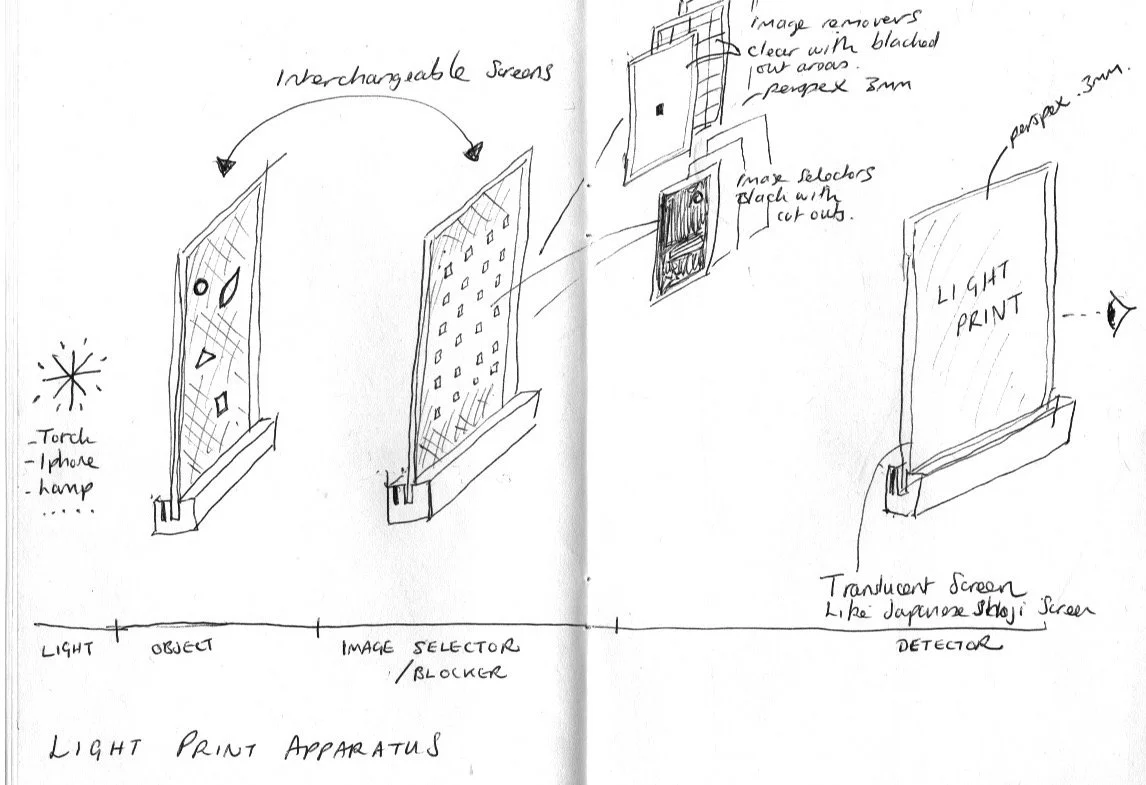 Interchangeable Screens
image removers
clear with blacked
out areas.
perspex 3mm
perspex .3mm.
image selectors
Black with
cut outs.
LIGHT
PRINT
- Torch
- Iphone
- Lamp
.....
Translucent Screen
Like Japanese Shoji Screen
LIGHT
OBJECT
IMAGE SELECTOR
/BLOCKER
DETECTOR
LIGHT PRINT APPARATUS